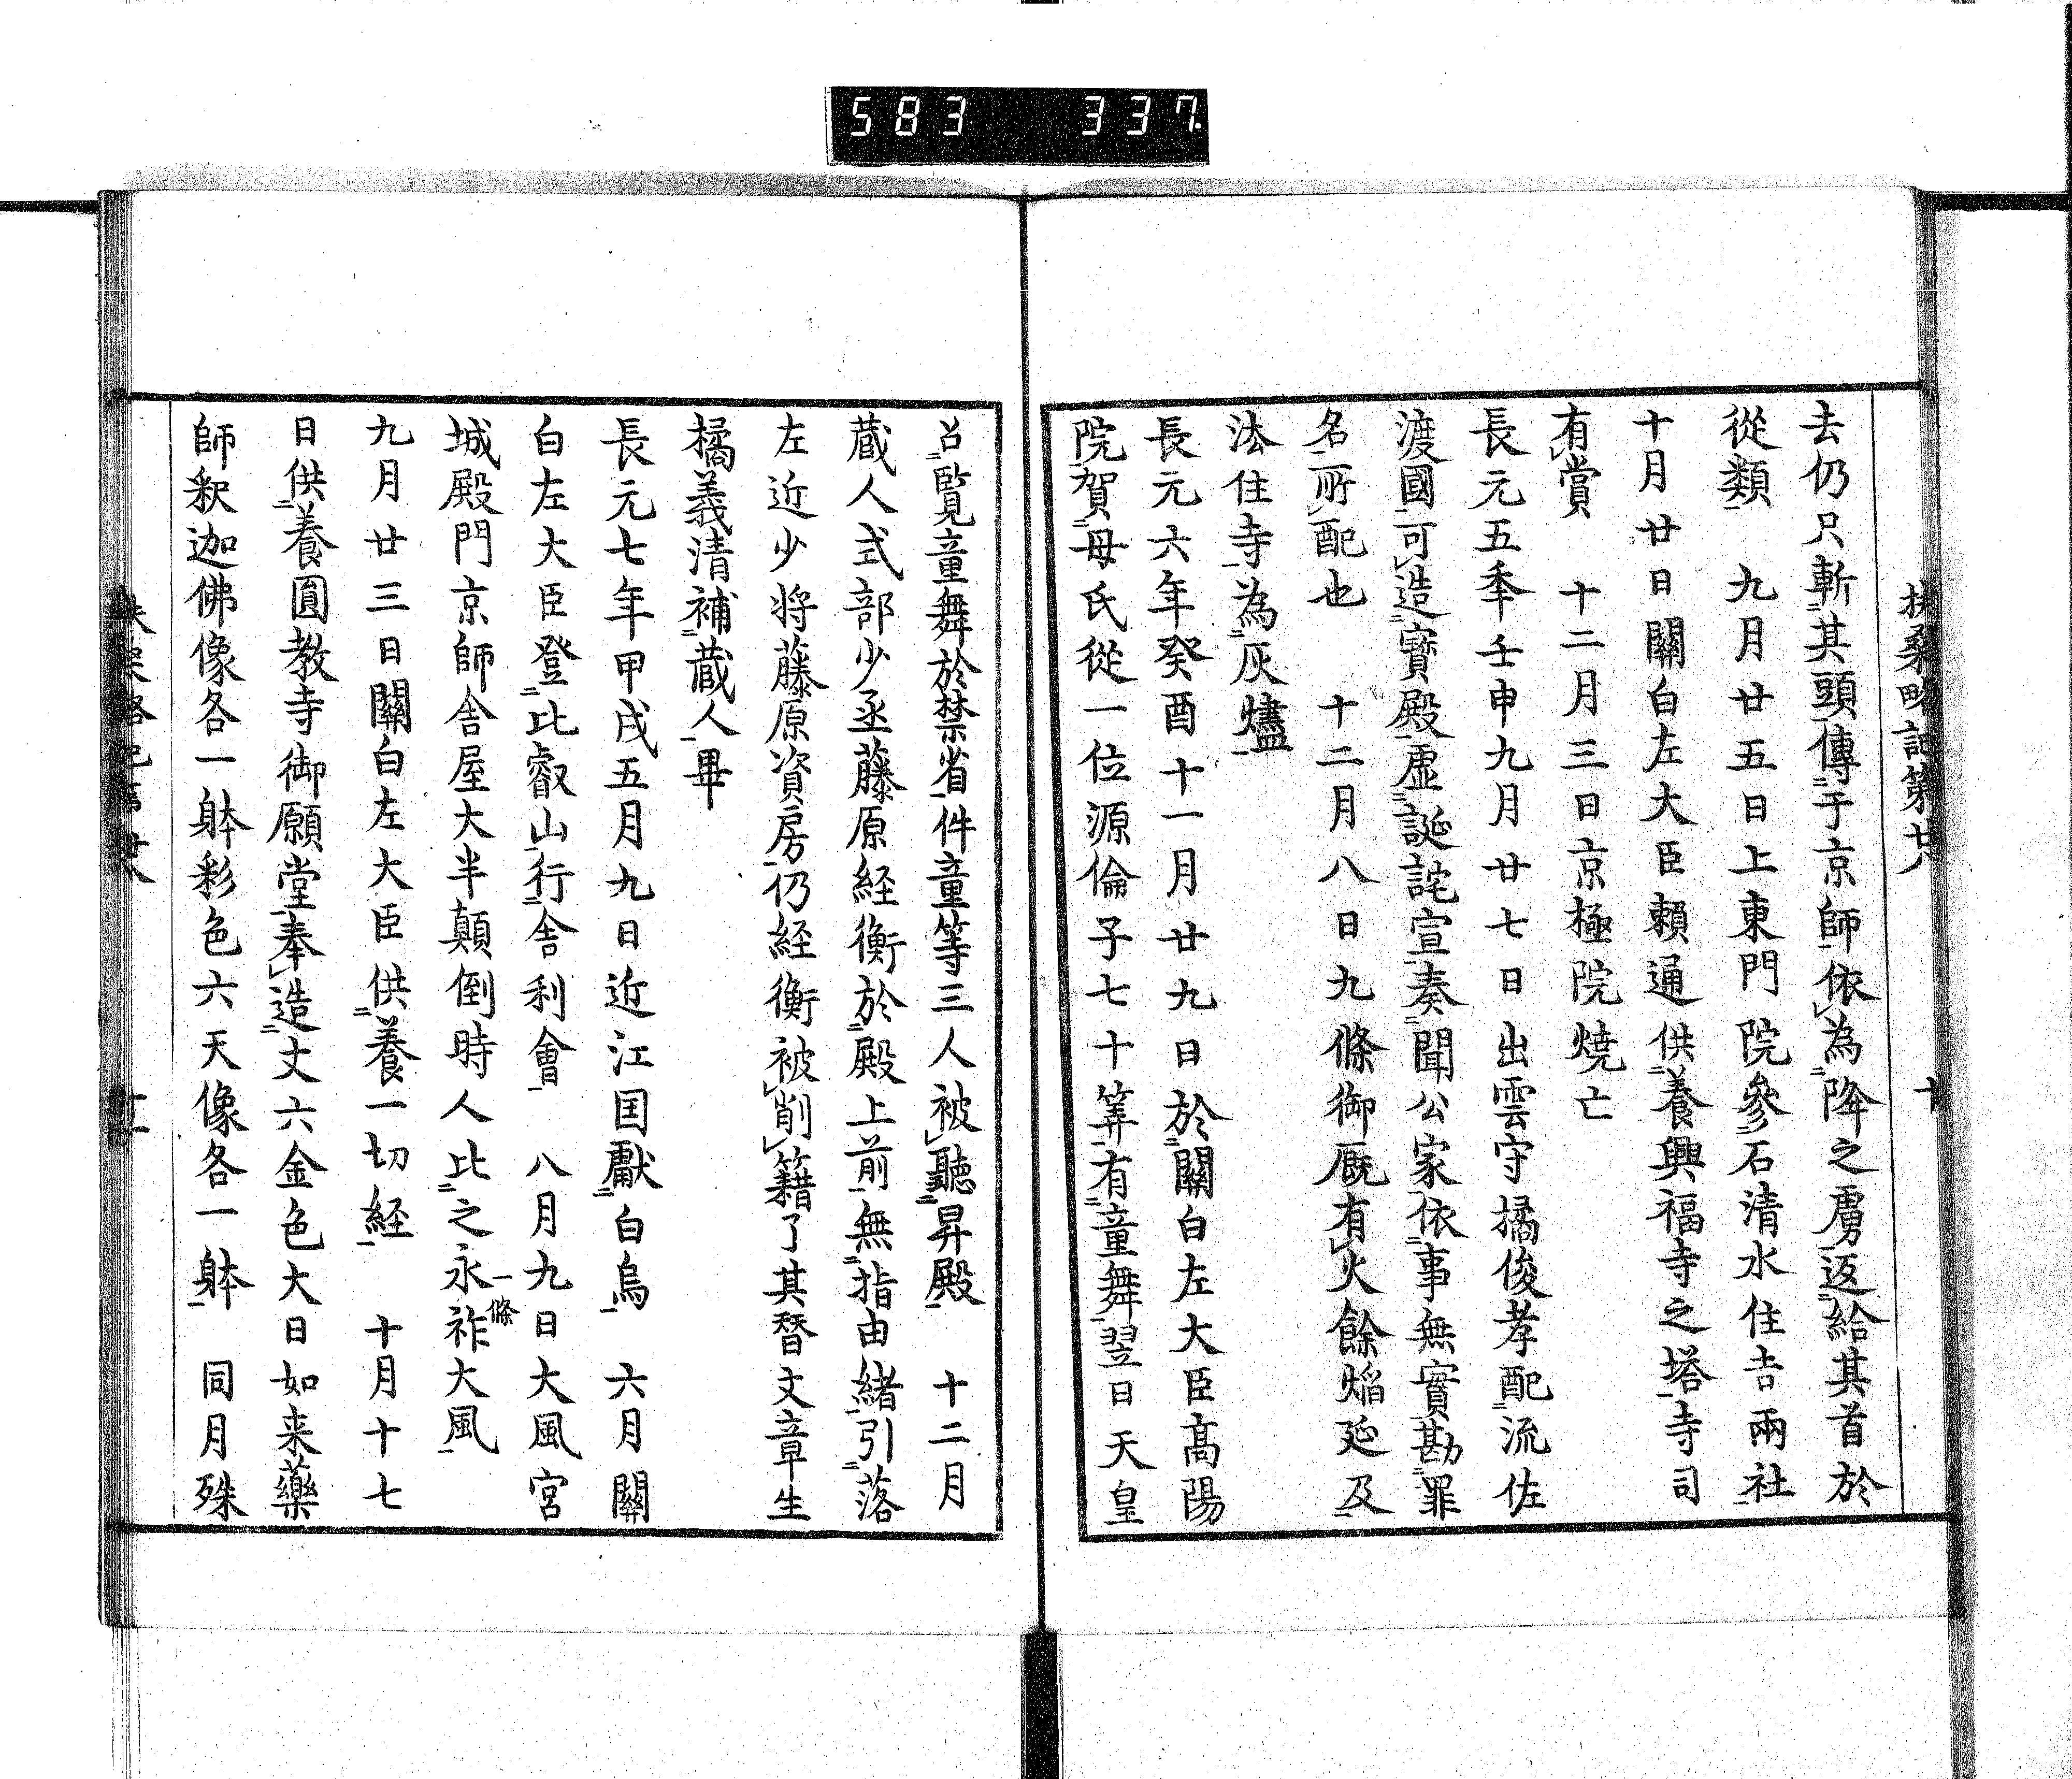 583 337.
扶桑略記第廿八 十
去仍只斬其頭傳于京師依為降之虜返給其首於
從類 九月廿五日上東門院參石清水住吉兩社
十月廿日關白左大臣賴通供養興福寺之塔寺司
有賞 十二月三日京極院燒亡
長元五秊壬申九月廿七日出雲守橘俊孝配流佐
渡國可造寶殿虛誕詫宣奏聞公家依事無實勘罪
名所配也 十二月八日九條御厩有火餘焔延及
法住寺為灰燼
長元六年癸酉十一月廿九日於關白左大臣髙陽
院賀母氏從一位源倫子七十筭有童舞翌日天皇
召覧童舞於禁省件童等三人被聽昇殿 十二月
蔵人式部少丞藤原経衡於殿上前無指由緒引落
左近少将藤原資房仍経衡被削籍了其替文章生
橘義清補蔵人畢
長元七年甲戌五月九日近江国獻白烏 六月關
白左大臣登比叡山行舎利會 八月九日大風宮
城殿門京師舎屋大半顛倒時人比之永祚大風
一條
九月廿三日關白左大臣供養一切経 十月十七
日供養圓教寺御願堂奉造丈六金色大日如来藥
師釈迦佛像各一躰彩色六天像各一躰 同月殊